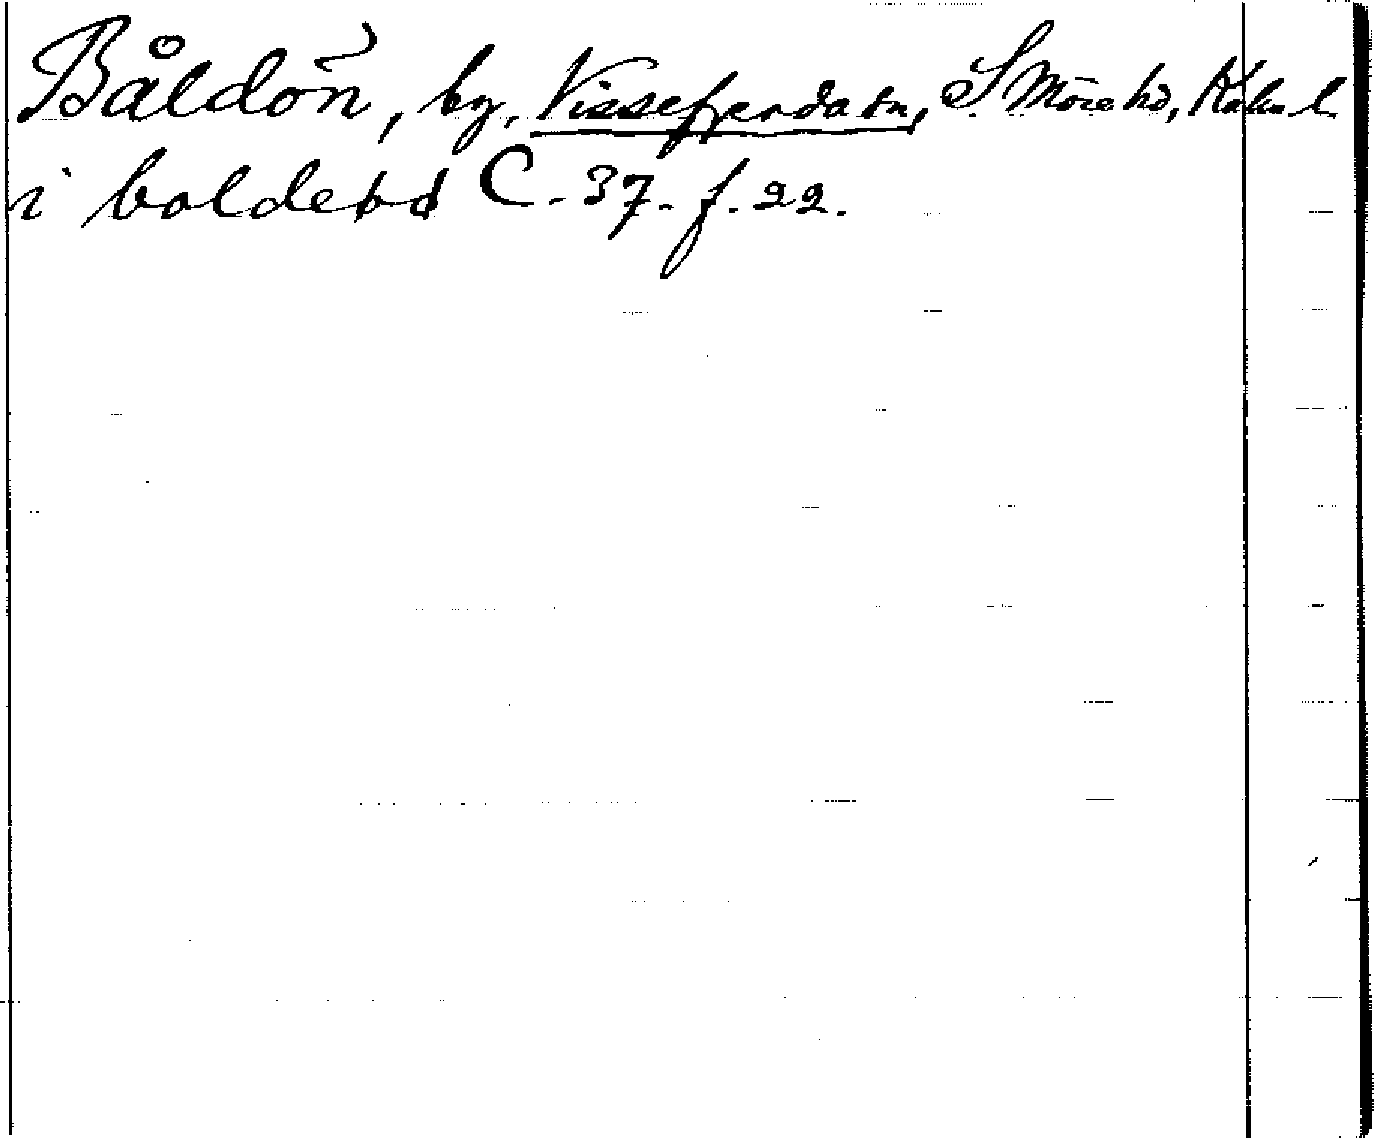 Båldön, by, Vissefjerda sn, S. Möre hd, Kalm. l.
i boldetѳd C. 37. f. 22.